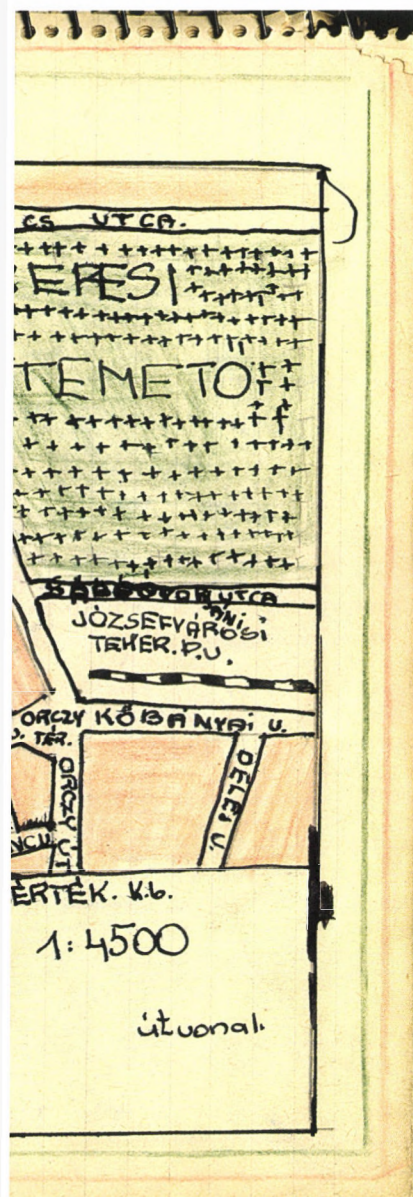 CS UTCA.
EPESI
TEMETŐ
UTCA
JÓZSEFVÁROSI
TEHER. P.U.
ORCZY KŐBÁNYAI U.
TÉR.
ORCZY ÚT
DELEJ U.
ÉRTÉK. K.b.
1:4500
útvonal.